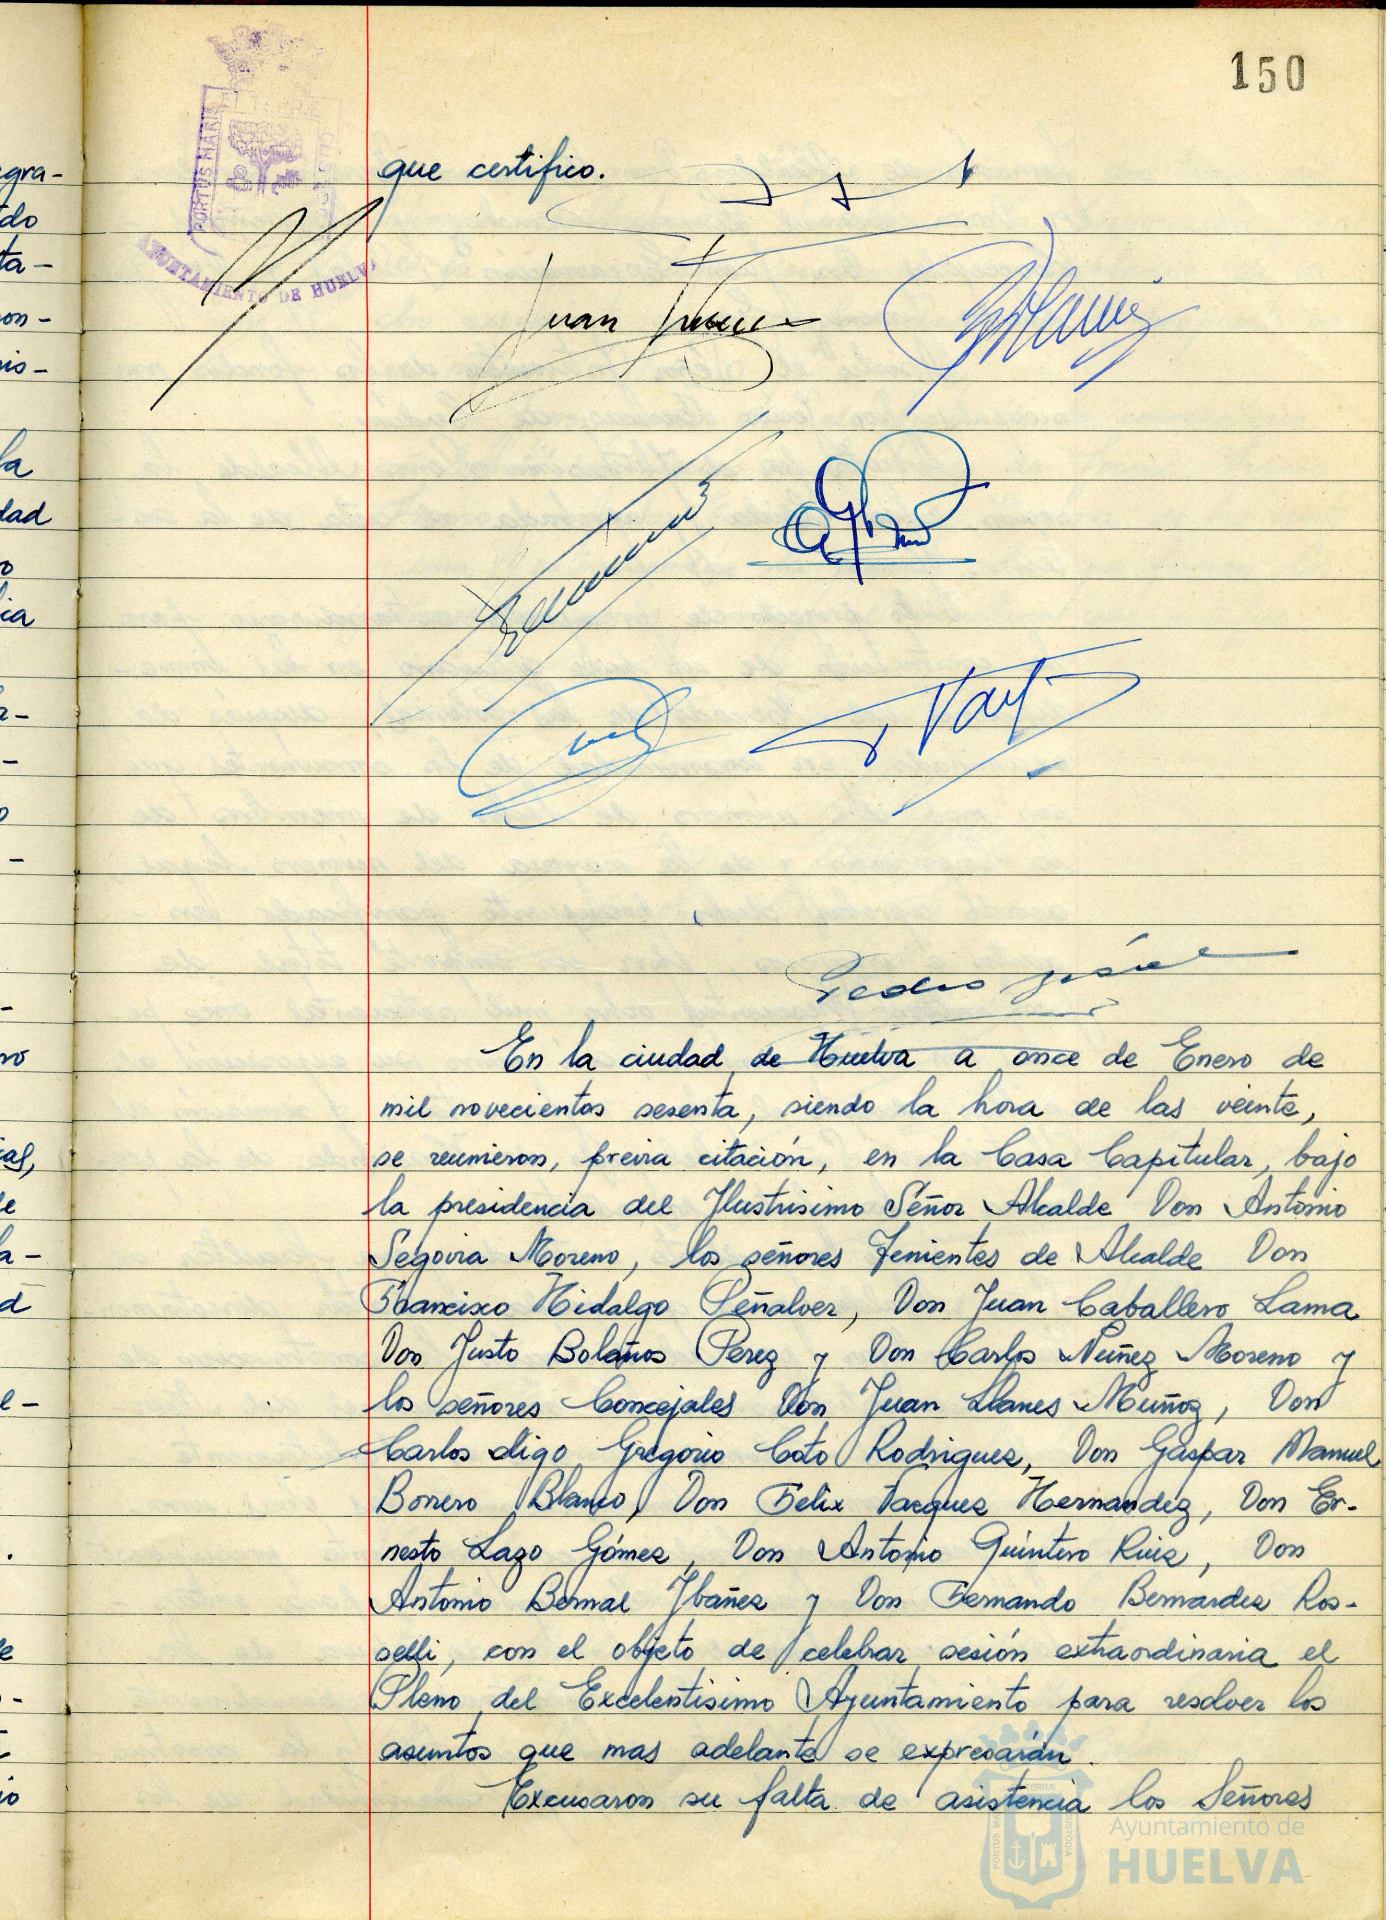 150
PORTUS MARIS
ET TERRÆ
AYUNTAMIENTO DE HUELVA
que certifico.
Juan
Pedro
En la ciudad de Huelva a once de Enero de
mil novecientos sesenta, siendo la hora de las veinte,
se reunieron, previa citación, en la Casa Capitular, bajo
la presidencia del Ilustrisimo Señor Alcalde Don Antonio
Segovia Moreno, los señores Tenientes de Alcalde Don
Francisco Hidalgo Peñalver, Don Juan Caballero Lama
Don Justo Bolaños Perez y Don Carlos Nuñez Moreno y
los señores Concejales Don Juan Llanes Muñoz, Don
Carlos digo Gregorio Coto Rodriguez, Don Gaspar Manuel
Borrero Blanco, Don Felix Vazquez Hernandez, Don Er-
nesto Lazo Gómez, Don Antonio Quintero Ruiz, Don
Antonio Bernal Ibañez y Don Fernando Bernardez Ros-
selli, con el objeto de celebrar sesión extraordinaria el
Pleno del Excelentisimo Ayuntamiento para resolver los
asuntos que mas adelante se expresarán.
Excusaron su falta de asistencia los Señores
Ayuntamiento de
HUELVA